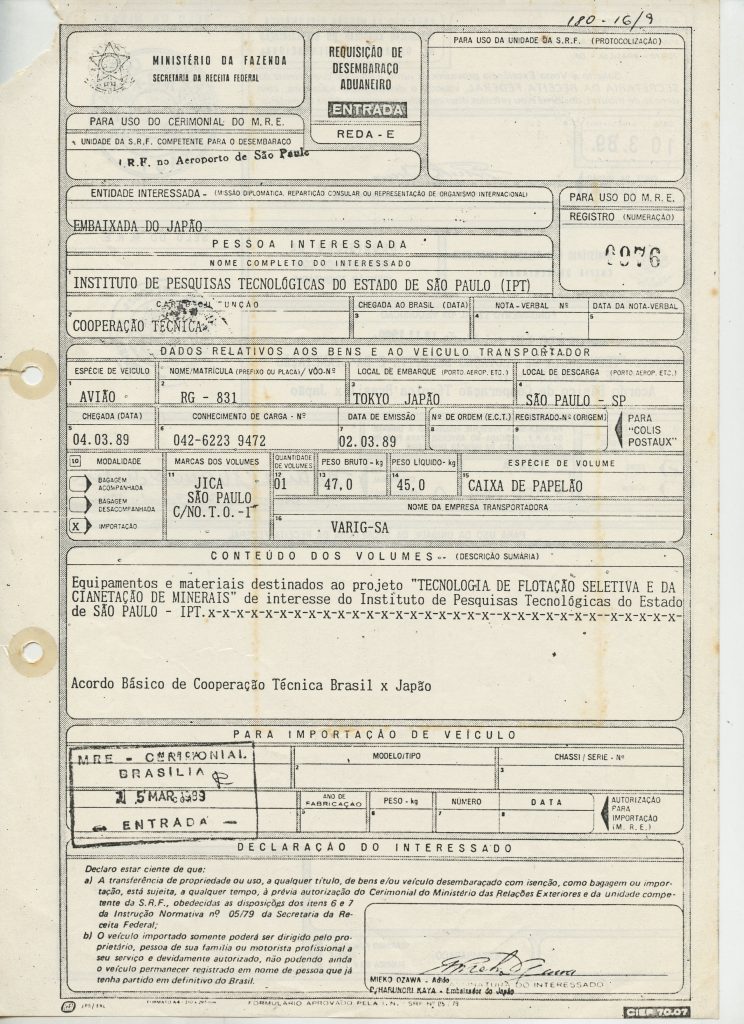 180-16/9
MINISTÉRIO DA FAZENDA
SECRETARIA DA RECEITA FEDERAL
REQUISIÇÃO DE
DESEMBARAÇO
ADUANEIRO
ENTRADA
REDA - E
PARA USO DA UNIDADE DA S.R.F. (PROTOCOLIZAÇÃO)
PARA USO DO CERIMONIAL DO M.R.E.
UNIDADE DA S.R.F. COMPETENTE PARA O DESEMBARAÇO
I.R.F. no Aeroporto de São Paulo
ENTIDADE INTERESSADA - (MISSÃO DIPLOMÁTICA, REPARTIÇÃO CONSULAR OU REPRESENTAÇÃO DE ORGANISMO INTERNACIONAL)
EMBAIXADA DO JAPÃO
PARA USO DO M.R.E.
REGISTRO (NUMERAÇÃO)
0976
PESSOA INTERESSADA
NOME COMPLETO DO INTERESSADO
1
INSTITUTO DE PESQUISAS TECNOLÓGICAS DO ESTADO DE SÃO PAULO (IPT)
CARGO OU FUNÇÃO
CHEGADA AO BRASIL (DATA)
NOTA-VERBAL Nº
DATA DA NOTA-VERBAL
2 3 4 5
COOPERAÇÃO TÉCNICA
DADOS RELATIVOS AOS BENS E AO VEÍCULO TRANSPORTADOR
ESPÉCIE DE VEÍCULO
NOME/MATRÍCULA (PREFIXO OU PLACA)/ VÔO-Nº
LOCAL DE EMBARQUE (PORTO, AEROP. ETC.)
LOCAL DE DESCARGA (PORTO, AEROP. ETC.)
1 2 3 4
AVIÃO RG - 831 TOKYO JAPÃO SÃO PAULO - SP
CHEGADA (DATA)
CONHECIMENTO DE CARGA - Nº
DATA DE EMISSÃO
Nº DE ORDEM (E.C.T.)
REGISTRADO-Nº (ORIGEM)
PARA
"COLIS
POSTAUX"
5 6 7 8 9
04.03.89 042-6223 9472 02.03.89
10 MODALIDADE
BAGAGEM
ACOMPANHADA
BAGAGEM
DESACOMPANHADA
X IMPORTAÇÃO
MARCAS DOS VOLUMES
11
JICA
SÃO PAULO
C/NO.T.O.-1
QUANTIDADE
DE VOLUMES
12
01
PESO BRUTO - kg
13
47,0
PESO LÍQUIDO - kg
14
45,0
ESPÉCIE DE VOLUME
15
CAIXA DE PAPELÃO
NOME DA EMPRESA TRANSPORTADORA
16
VARIG-SA
CONTEÚDO DOS VOLUMES - (DESCRIÇÃO SUMÁRIA)
Equipamentos e materiais destinados ao projeto "TECNOLOGIA DE FLOTAÇÃO SELETIVA E DA
CIANETAÇÃO DE MINERAIS" de interesse do Instituto de Pesquisas Tecnológicas do Estado
de SÃO PAULO - IPT.x-x-x-x-x-x-x-x-x-x-x-x-x-x-x-x-x-x-x-x--x-x-x-x-x-x-x-x-x-x-x-x-
Acordo Básico de Cooperação Técnica Brasil x Japão
PARA IMPORTAÇÃO DE VEÍCULO
MRE - CERIMONIAL
BRASÍLIA
15 MAR
ENTRADA
MODELO/TIPO
2
CHASSI / SERIE - Nº
3
ANO DE
FABRICAÇÃO
5
PESO - kg
6
NÚMERO
7
DATA
8
AUTORIZAÇÃO
PARA
IMPORTAÇÃO
(M. R. E.)
DECLARAÇÃO DO INTERESSADO
Declaro estar ciente de que:
a) A transferência de propriedade ou uso, a qualquer título, de bens e/ou veículo desembaraçado com isenção, como bagagem ou impor-
tação, está sujeita, a qualquer tempo, à prévia autorização do Cerimonial do Ministério das Relações Exteriores e da unidade compe-
tente da S.R.F., obedecidas as disposições dos itens 6 e 7
da Instrução Normativa nº 05/79 da Secretaria da Re-
ceita Federal;
b) O veículo importado somente poderá ser dirigido pelo pro-
prietário, pessoa de sua família ou motorista profissional a
seu serviço e devidamente autorizado, não pudendo ainda
o veículo permanecer registrado em nome de pessoa que já
tenha partido em definitivo do Brasil.
MIEKO OZAWA - Adido
P/HARUNORI KAYA - Embaixador do Japão
ASSINATURA DO INTERESSADO
FORMULÁRIO APROVADO PELA I.N. - SRF Nº 05/79
CIEF 70.07